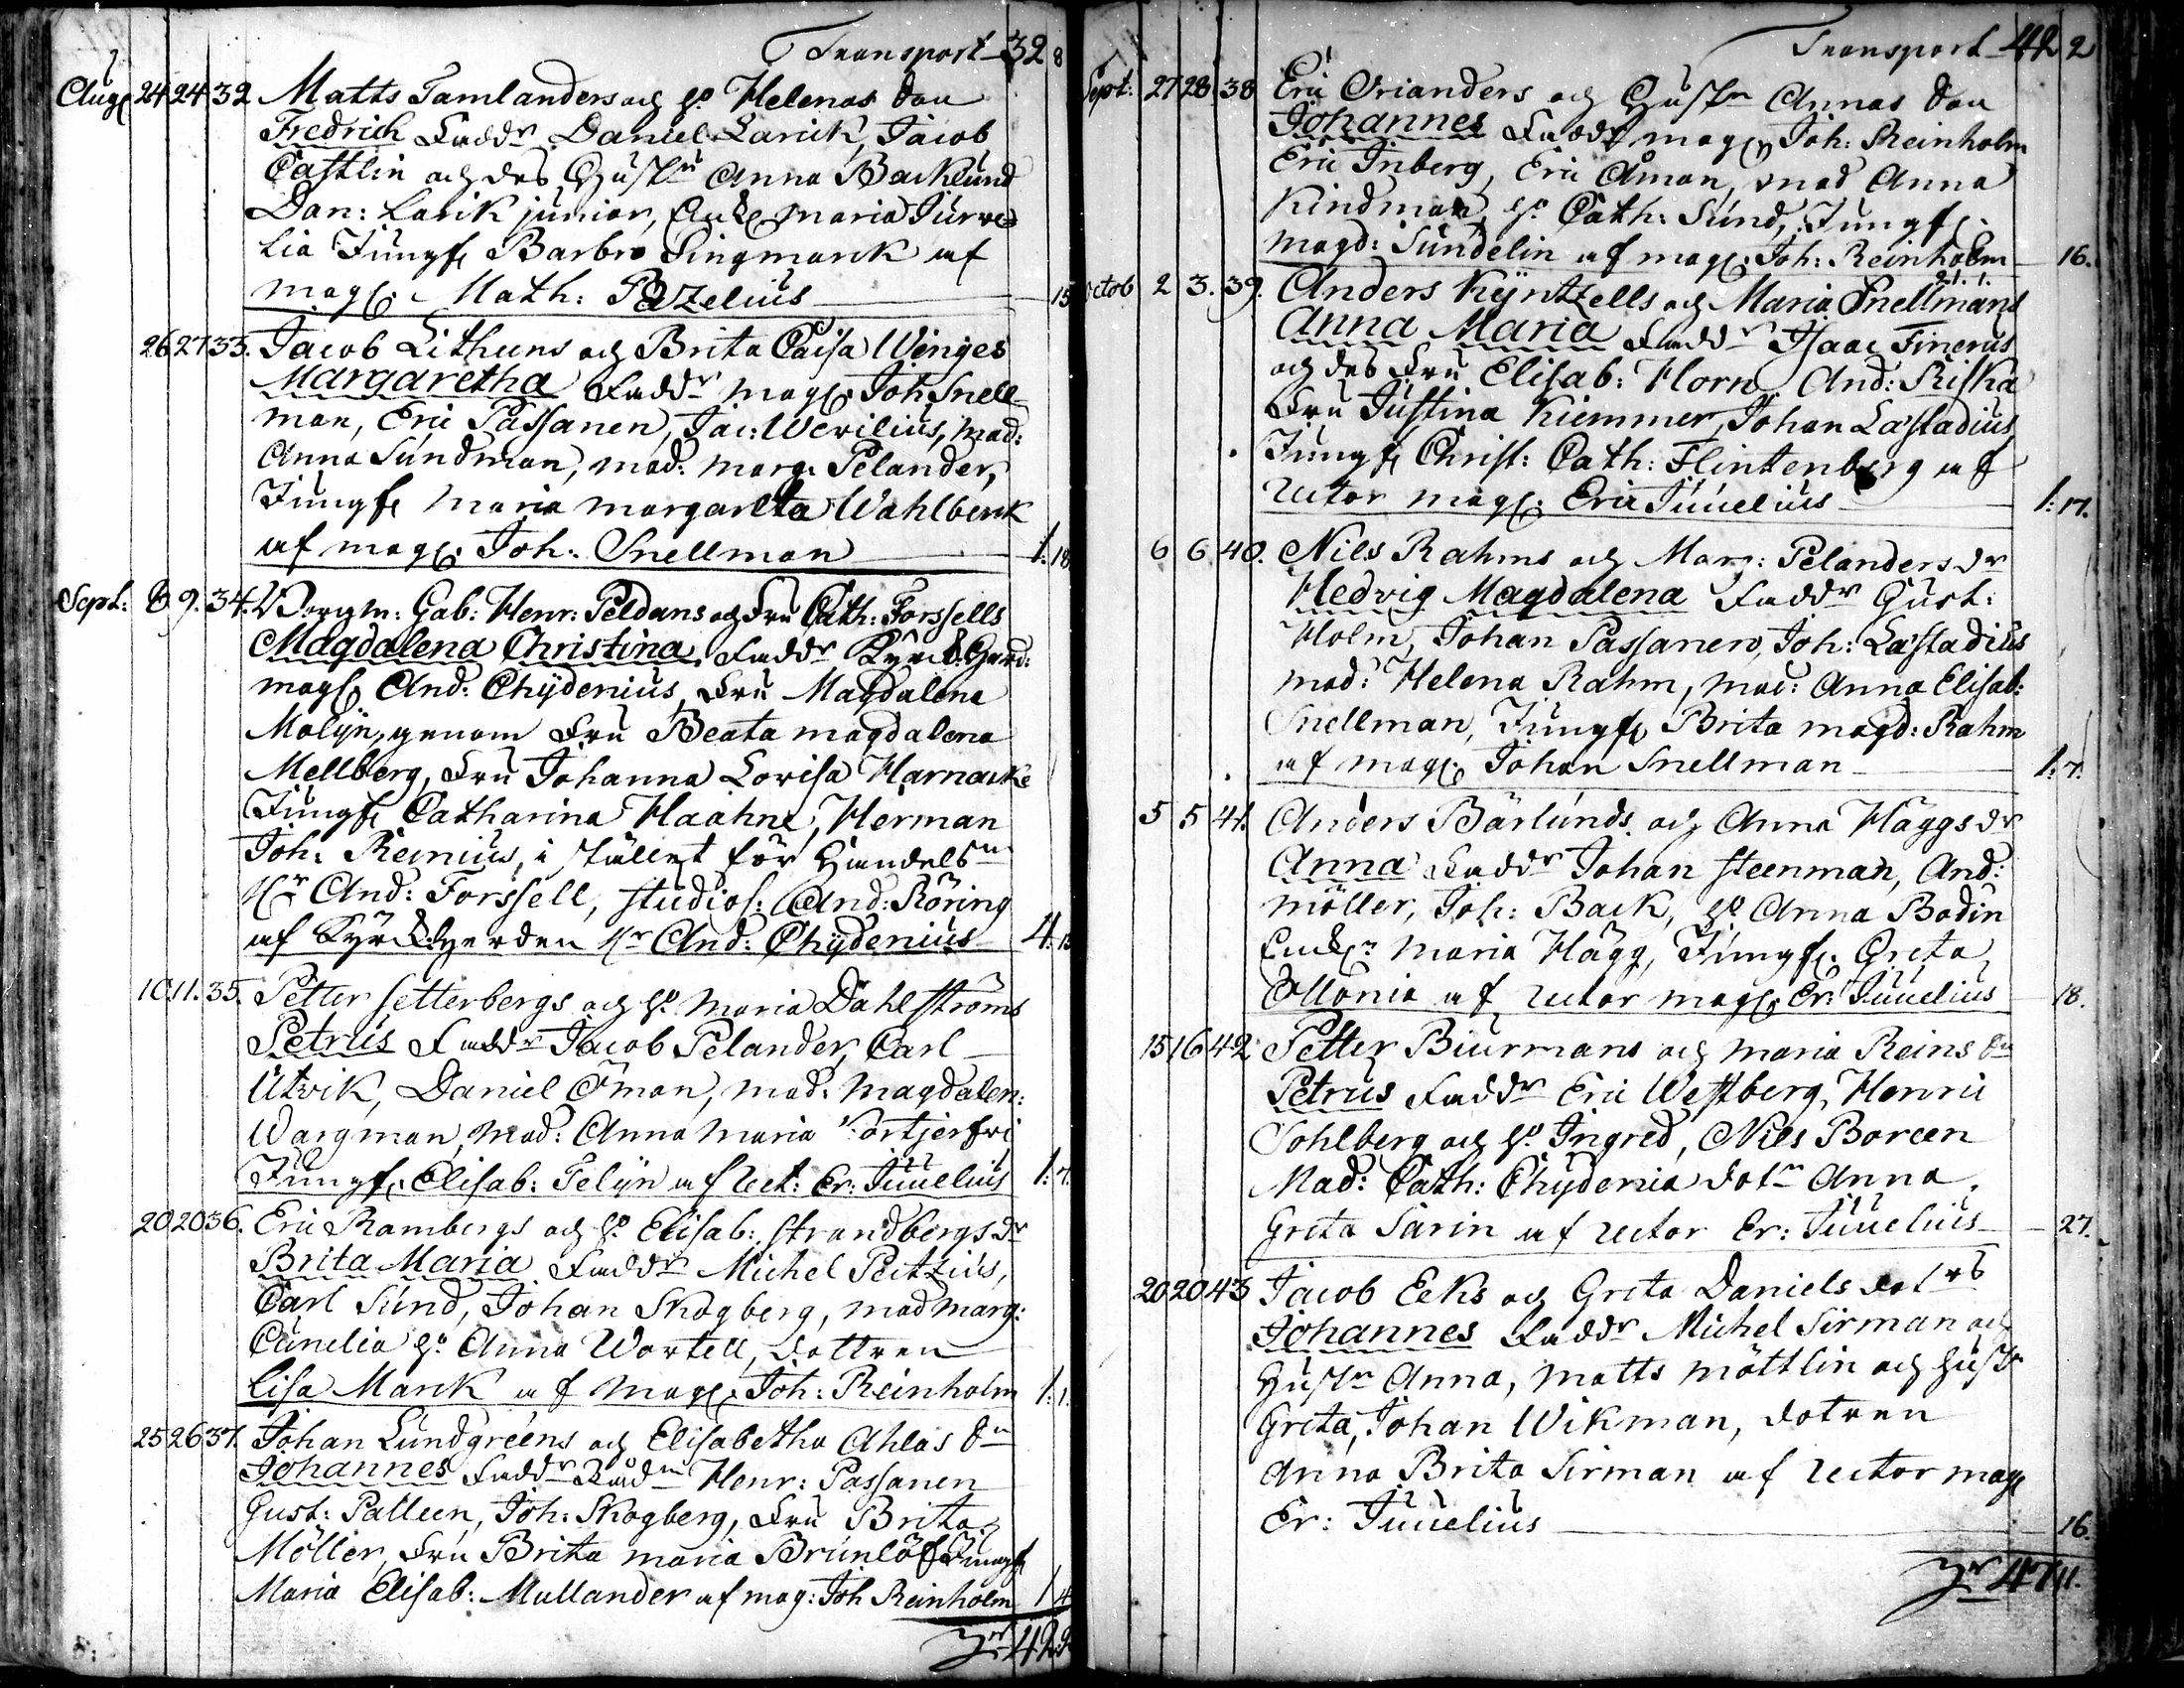 Transport 32 8
Aug 24 24 32 Matts Tamlanders och h. Helenas Son
Fredrich Faddr Daniel Larick, Jacob
Castlin och des Hustru Anna Backlund
Dan: Larik junior, Maria Jurve
lia Jungf Barbro Lingmarck af
mag: Math: Pazelius 15
26 27 33. Jacob Lithuns och Brita Caisa Winges
Margaretha Faddr mag: Joh Snell
man, Eric Passanen, Jac: Werilius, Mad:
Anna Sundman, mad: Marg: Pelander,
Jungf Maria Margareta Wahlberk
af mag: Joh: Snellman 1: 18
Sept: 8 9. 34. Borgm: Gab: Henr: Peldans och Fru Cath: Forssells
Magdalena Christina Faddr Kyrckoherd:
mag And: Chydenius, Fru Magdalena
Molijn, genom Fru Beata Magdalena
Mellberg, Fru Johanna Lovisa Harnacke
Jungf Catharina Haahne, Herman
Joh: Reinius, i stället för Handelsm
Hr And: Forssell, studios: And: Röring
af Kyrckoherden Hr And: Chydenius 4.
10 11. 35. Petter Setterbergs och h. Maria Dahlströms
Petrus Faddr Jacob Pelander, Carl
Utvik, Daniel Öman, mad: Magdalen:
Wargman, Mad: Anna Maria
Jungf. Elisab: Telin af rect: Er: Juuelius 1: 7.
20 20 36. Eric Rambergs och h. Elisab: Strandbergs dr
Brita Maria Faddr Michel Peitzius,
Carl Sund, Johan Skogberg, mad Marg:
Cunelia h. Anna Wortell, dottren
Lisa Marck af mag: Joh: Reinholm 1: 1.
25 26 37. Johan Lundgreens och Elisabetha Ahlas Sn
Johannes Faddr Rådm Henr: Passanen
Gust: Palleen, Joh: Skogberg, Fru Brita
Möller, Fru Brita Maria Brunlöf Jungf
Maria Elisab: Mullander af mag: Joh Reinholm 1 4
42 2
Transport 42 2
Sept: 27 28 38 Eric Orianders och Hustr Annas Son
Johannes Faddr mag Joh: Reinholm
Eric Inberg, Eric Åman, mad Anna
Kindman, h. Cath: Sund, Jungf
Magd: Sundelin af mag: Joh: Reinholm 16.
Octob 2 3. 39. Anders Kyntzells och Maria Snellmans
Anna Maria Faddr Isaac Finerus
och des Fru Elisab: Horn, And: Riska
Fru Justina Kiemmer, Johan Lastadius
Jungf Christ: Cath: Flintenberg af
rector mag: Eric Juuelius 1: 17.
6 6 40. Nils Rahms och Marg: Pelanders dr
Hedvig Magdalena Faddr Gust:
Holm, Johan Passanen, Joh: Lastadius
mad: Helena Rahm, mad: Anna Elisab:
Snellman, Jungf Brita Magd: Rahm
af mag: Johan Snellman 1: 7.
5 5 41. Anders Bärlunds och Anna Häggs dr
Anna Faddr Johan Steenman, And:
Möller, Joh: Back, h. Anna Bodin
Maria Hägg, Jungf. Greta
af rector mag: Er: Juuelius 18.
15 16 42 Petter Biurmans och Maria Reins Sn
Petrus Faddr Eric Westberg, Henric
Sohlberg och h. Ingred, Nils Boreen
Mad: Cath: Chydenia dotr Anna
Greta Sarin af rector Er: Juuelius 27.
20 20 43 Jacob Eeks och Greta Daniels dotrs
Johannes Faddr Michel Sirman och
Hustr Anna, Matts Möttlin och hustr
Greta, Johan Wikman, dotren
Anna Brita Sirman af rector mag
Er: Juuelius 16.
47 11.